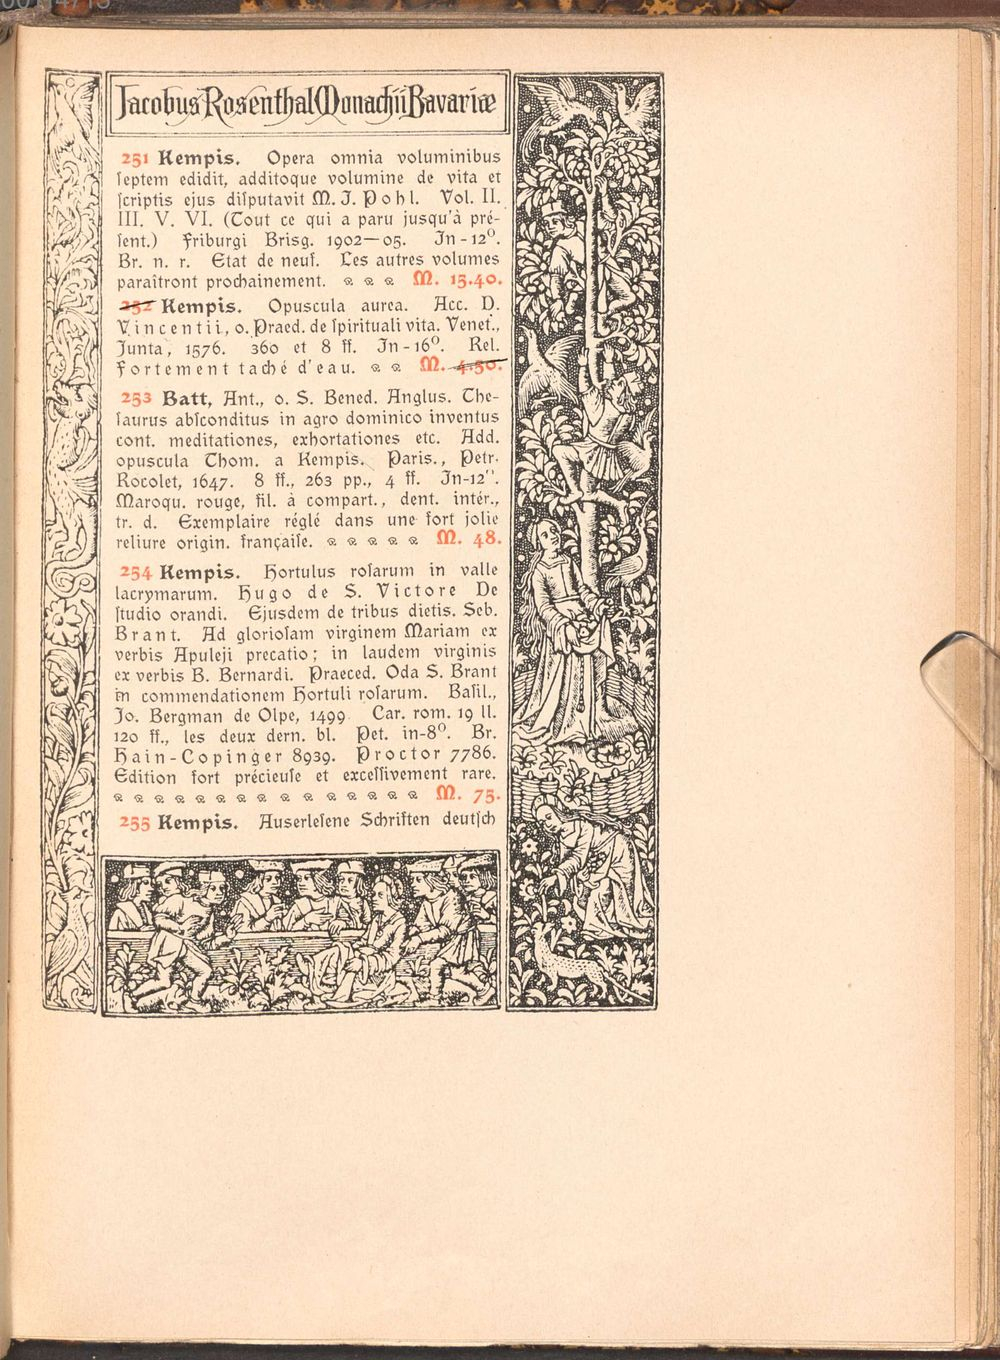 Jacobus Rosenthal Monachii Bavariæ
251 Kempis. Opera omnia voluminibus
ſeptem edidit, additoque volumine de vita et
ſcriptis ejus diſputavit M. J. Pohl. Vol. II.
III. V. VI. (Tout ce qui a paru jusqu'à pré-
ſent.) Friburgi Brisg. 1902—05. In-12⁰.
Br. n. r. Etat de neuf. Les autres volumes
paraîtront prochainement. M. 15.40.
252 Kempis. Opuscula aurea. Acc. D.
Vincentii, o. Praed. de ſpirituali vita. Venet.,
Junta, 1576. 360 et 8 ff. In-16⁰. Rel.
Fortement taché d'eau. M. 4.50.
253 Batt, Ant., o. S. Bened. Anglus. The-
ſaurus abſconditus in agro dominico inventus
cont. meditationes, exhortationes etc. Add.
opuscula Thom. a Kempis. Paris., Petr.
Rocolet, 1647. 8 ff., 263 pp., 4 ff. In-12⁰.
Maroqu. rouge, fil. à compart., dent. intér.,
tr. d. Exemplaire réglé dans une fort jolie
reliure origin. françaiſe. M. 48.
254 Kempis. Hortulus roſarum in valle
lacrymarum. Hugo de S. Victore De
ſtudio orandi. Ejusdem de tribus dietis. Seb.
Brant. Ad glorioſam virginem Mariam ex
verbis Apuleji precatio; in laudem virginis
ex verbis B. Bernardi. Praeced. Oda S. Brant
in commendationem Hortuli roſarum. Baſil.,
Jo. Bergman de Olpe, 1499 Car. rom. 19 ll.
120 ff., les deux dern. bl. Pet. in-8⁰. Br.
Hain-Copinger 8939. Proctor 7786.
Edition fort précieuſe et exceſſivement rare.
M. 75.
255 Kempis. Auserleſene Schriften deutſch